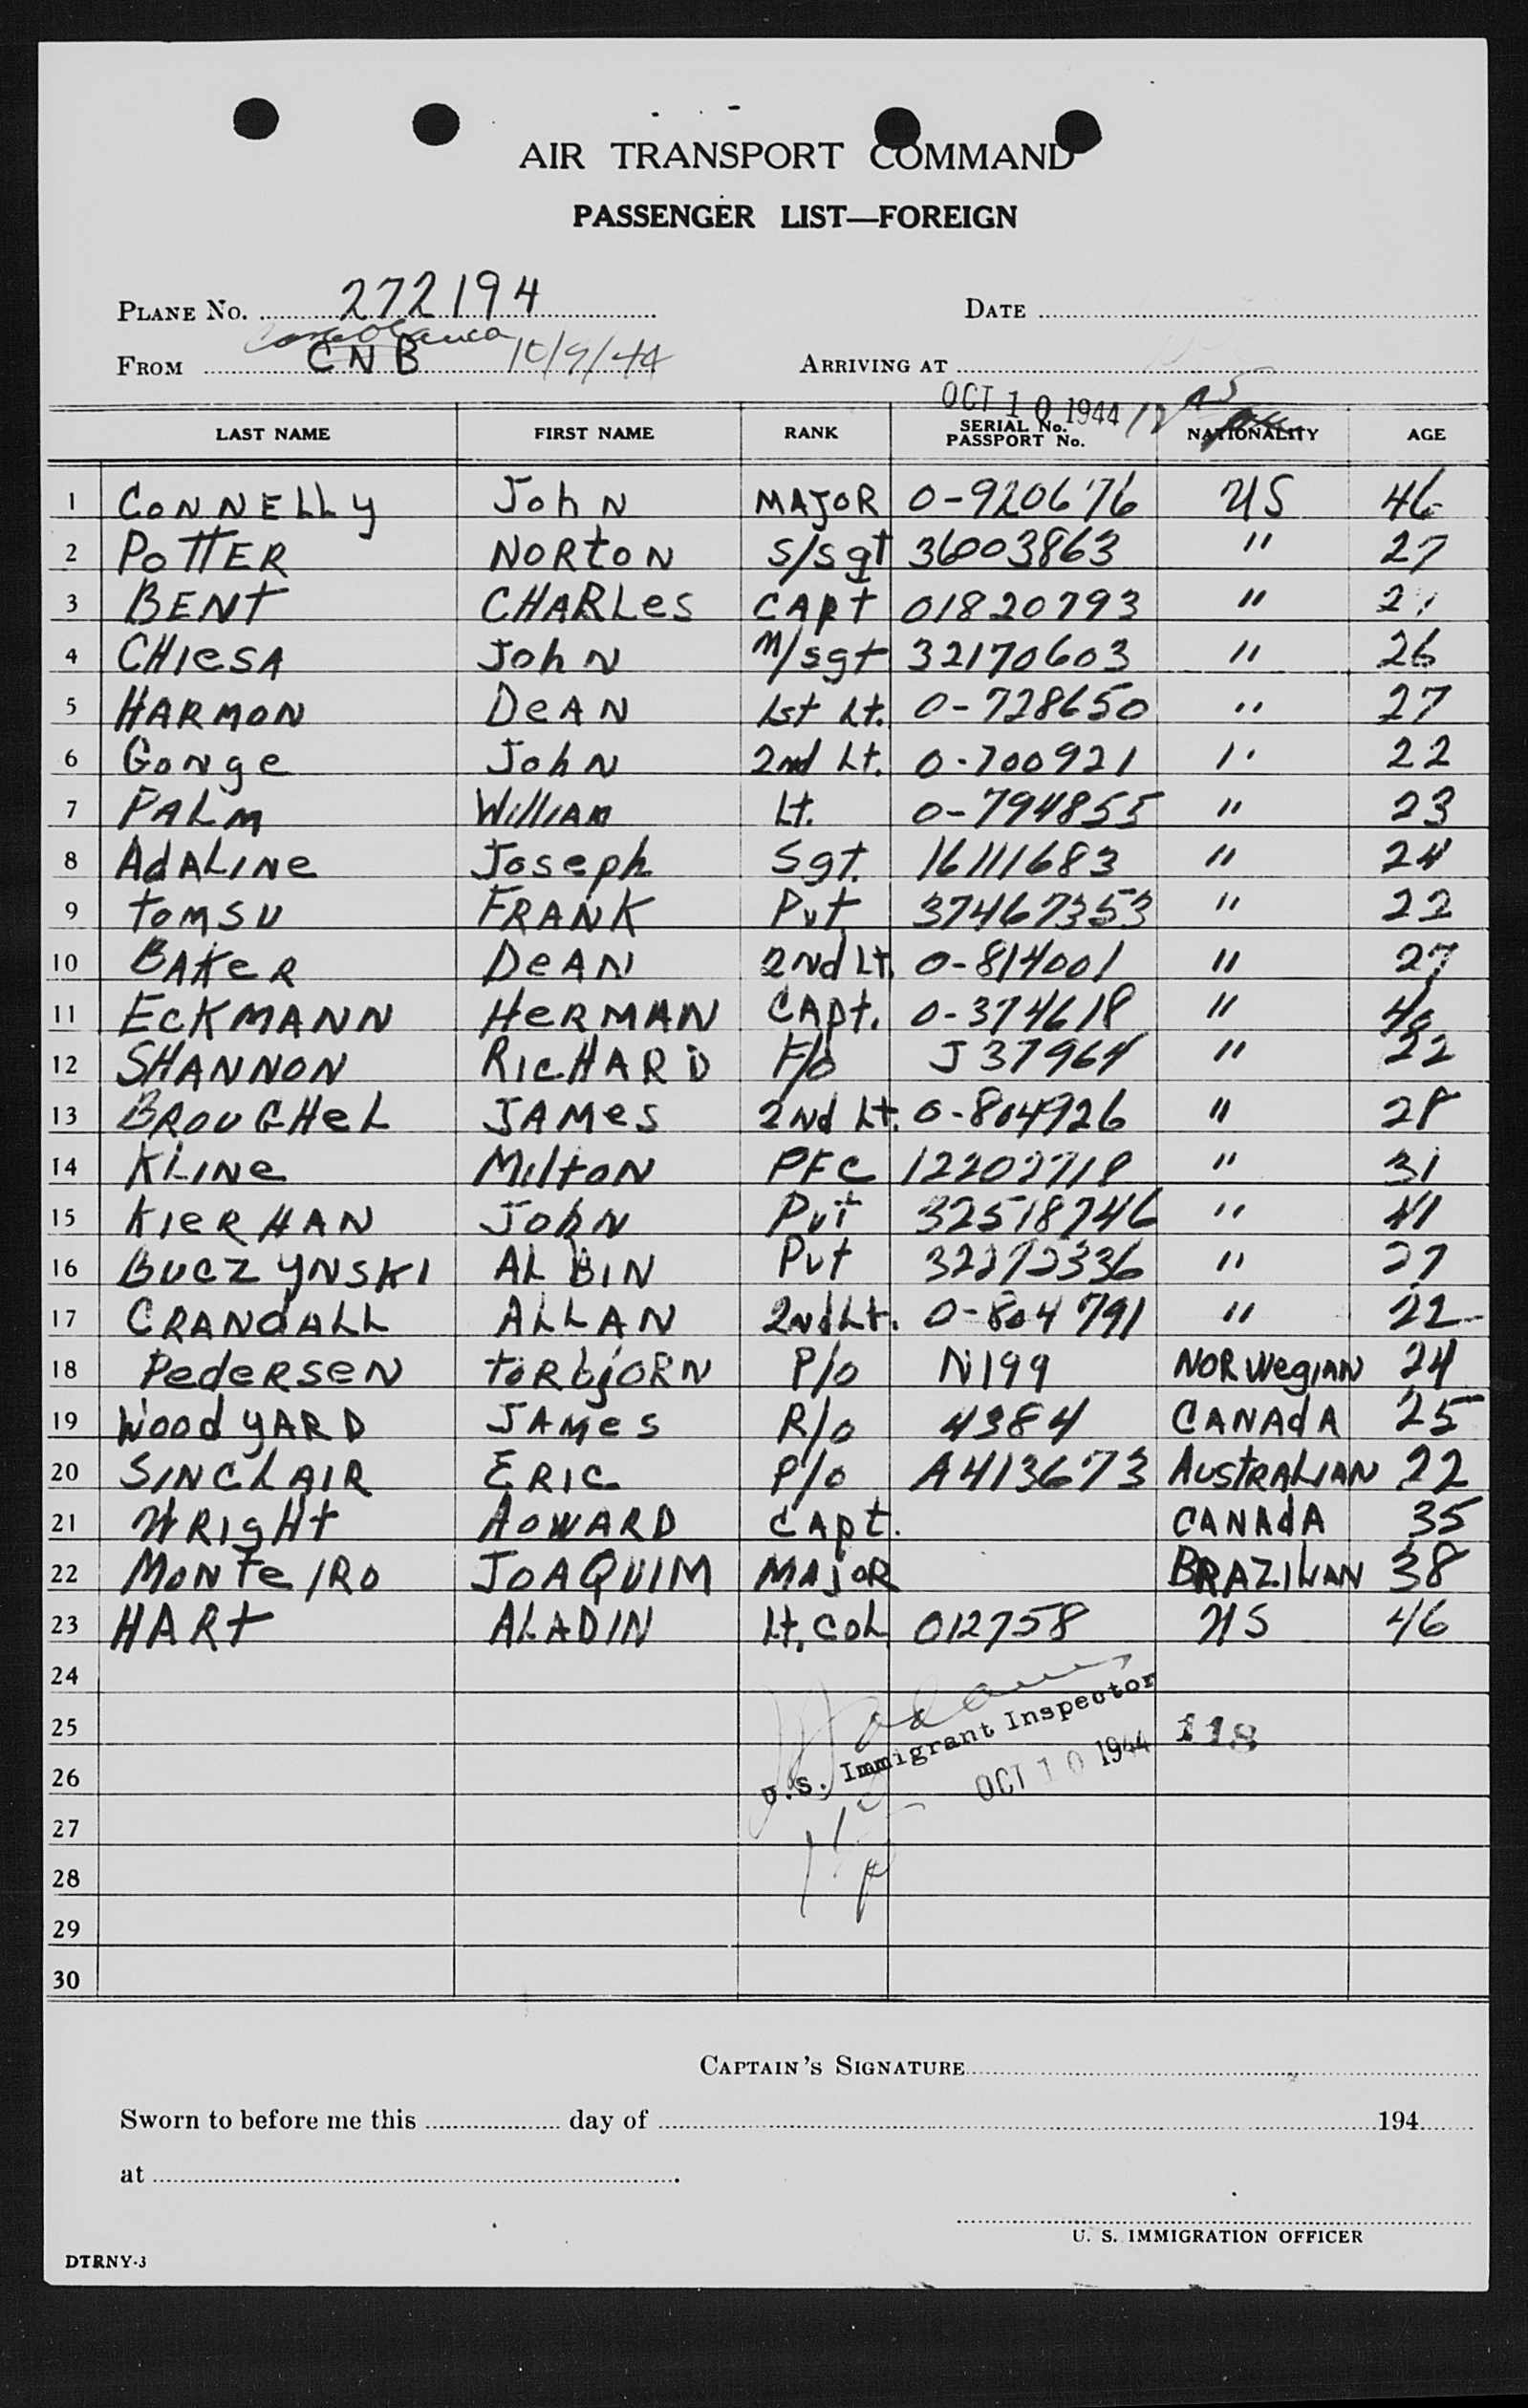 AIR TRANSPORT COMMAND
PASSENGER LIST—FOREIGN
PLANE No. 272194 DATE
Casablanca
FROM CNB 10/9/44 ARRIVING AT
OCT 10 1944
LAST NAME FIRST NAME RANK SERIAL No. PASSPORT No. NATIONALITY AGE
1 CONNELLY JohN MAJOR 0-920676 US 46
2 POTTER NORtoN S/Sgt 36003863 " 27
3 BENt CHARLes CAPt 01820793 "
4 CHIesA JohN M/sgt 32170603 " 26
5 HARMON DeAN 1st Lt. 0-728650 " 27
6 Gonge JohN 2nd Lt. 0-700921 " 22
7 PALM WilliAm Lt. 0-794855 " 23
8 AdALINe Joseph Sgt. 16111683 " 24
9 tomsu FRANK Pvt 37467353 " 22
10 BAKeR DeAN 2Nd Lt. 0-814001 " 27
11 ECKMANN HeRMAN CApt. 0-374618 "
12 SHANNON RICHARD F/o J37964 " 22
13 BROUGHeL JAMes 2Nd Lt. 0-804926 " 28
14 KLINe MiltoN PFC 12202718 " 31
15 KIeRHAN JohN Pvt 32518746 " 41
16 BUCZYNSKI ALBIN Pvt 32272336 " 27
17 CRANdALL ALLAN 2Nd Lt. 0-804791 " 22
18 PedeRSeN toRbjoRN P/o N199 NORWegIAN 24
19 WoodyARD JAMes R/o 4384 CANAdA 25
20 SINCLAIR ERIC P/o A413673 AUStRALIAN 22
21 WRIgHt HOWARD CApt. CANAdA 35
22 MoNTeIRo JOAQUIM MAjoR BRAZILIAN 38
23 HARt ALADIN Lt. CoL 012758 US 46
24
25 U.S. Immigrant Inspector 118
26 OCT 10 1944
27
28
29
30
CAPTAIN'S SIGNATURE
Sworn to before me this day of 194
at
U. S. IMMIGRATION OFFICER
DTRNY-3